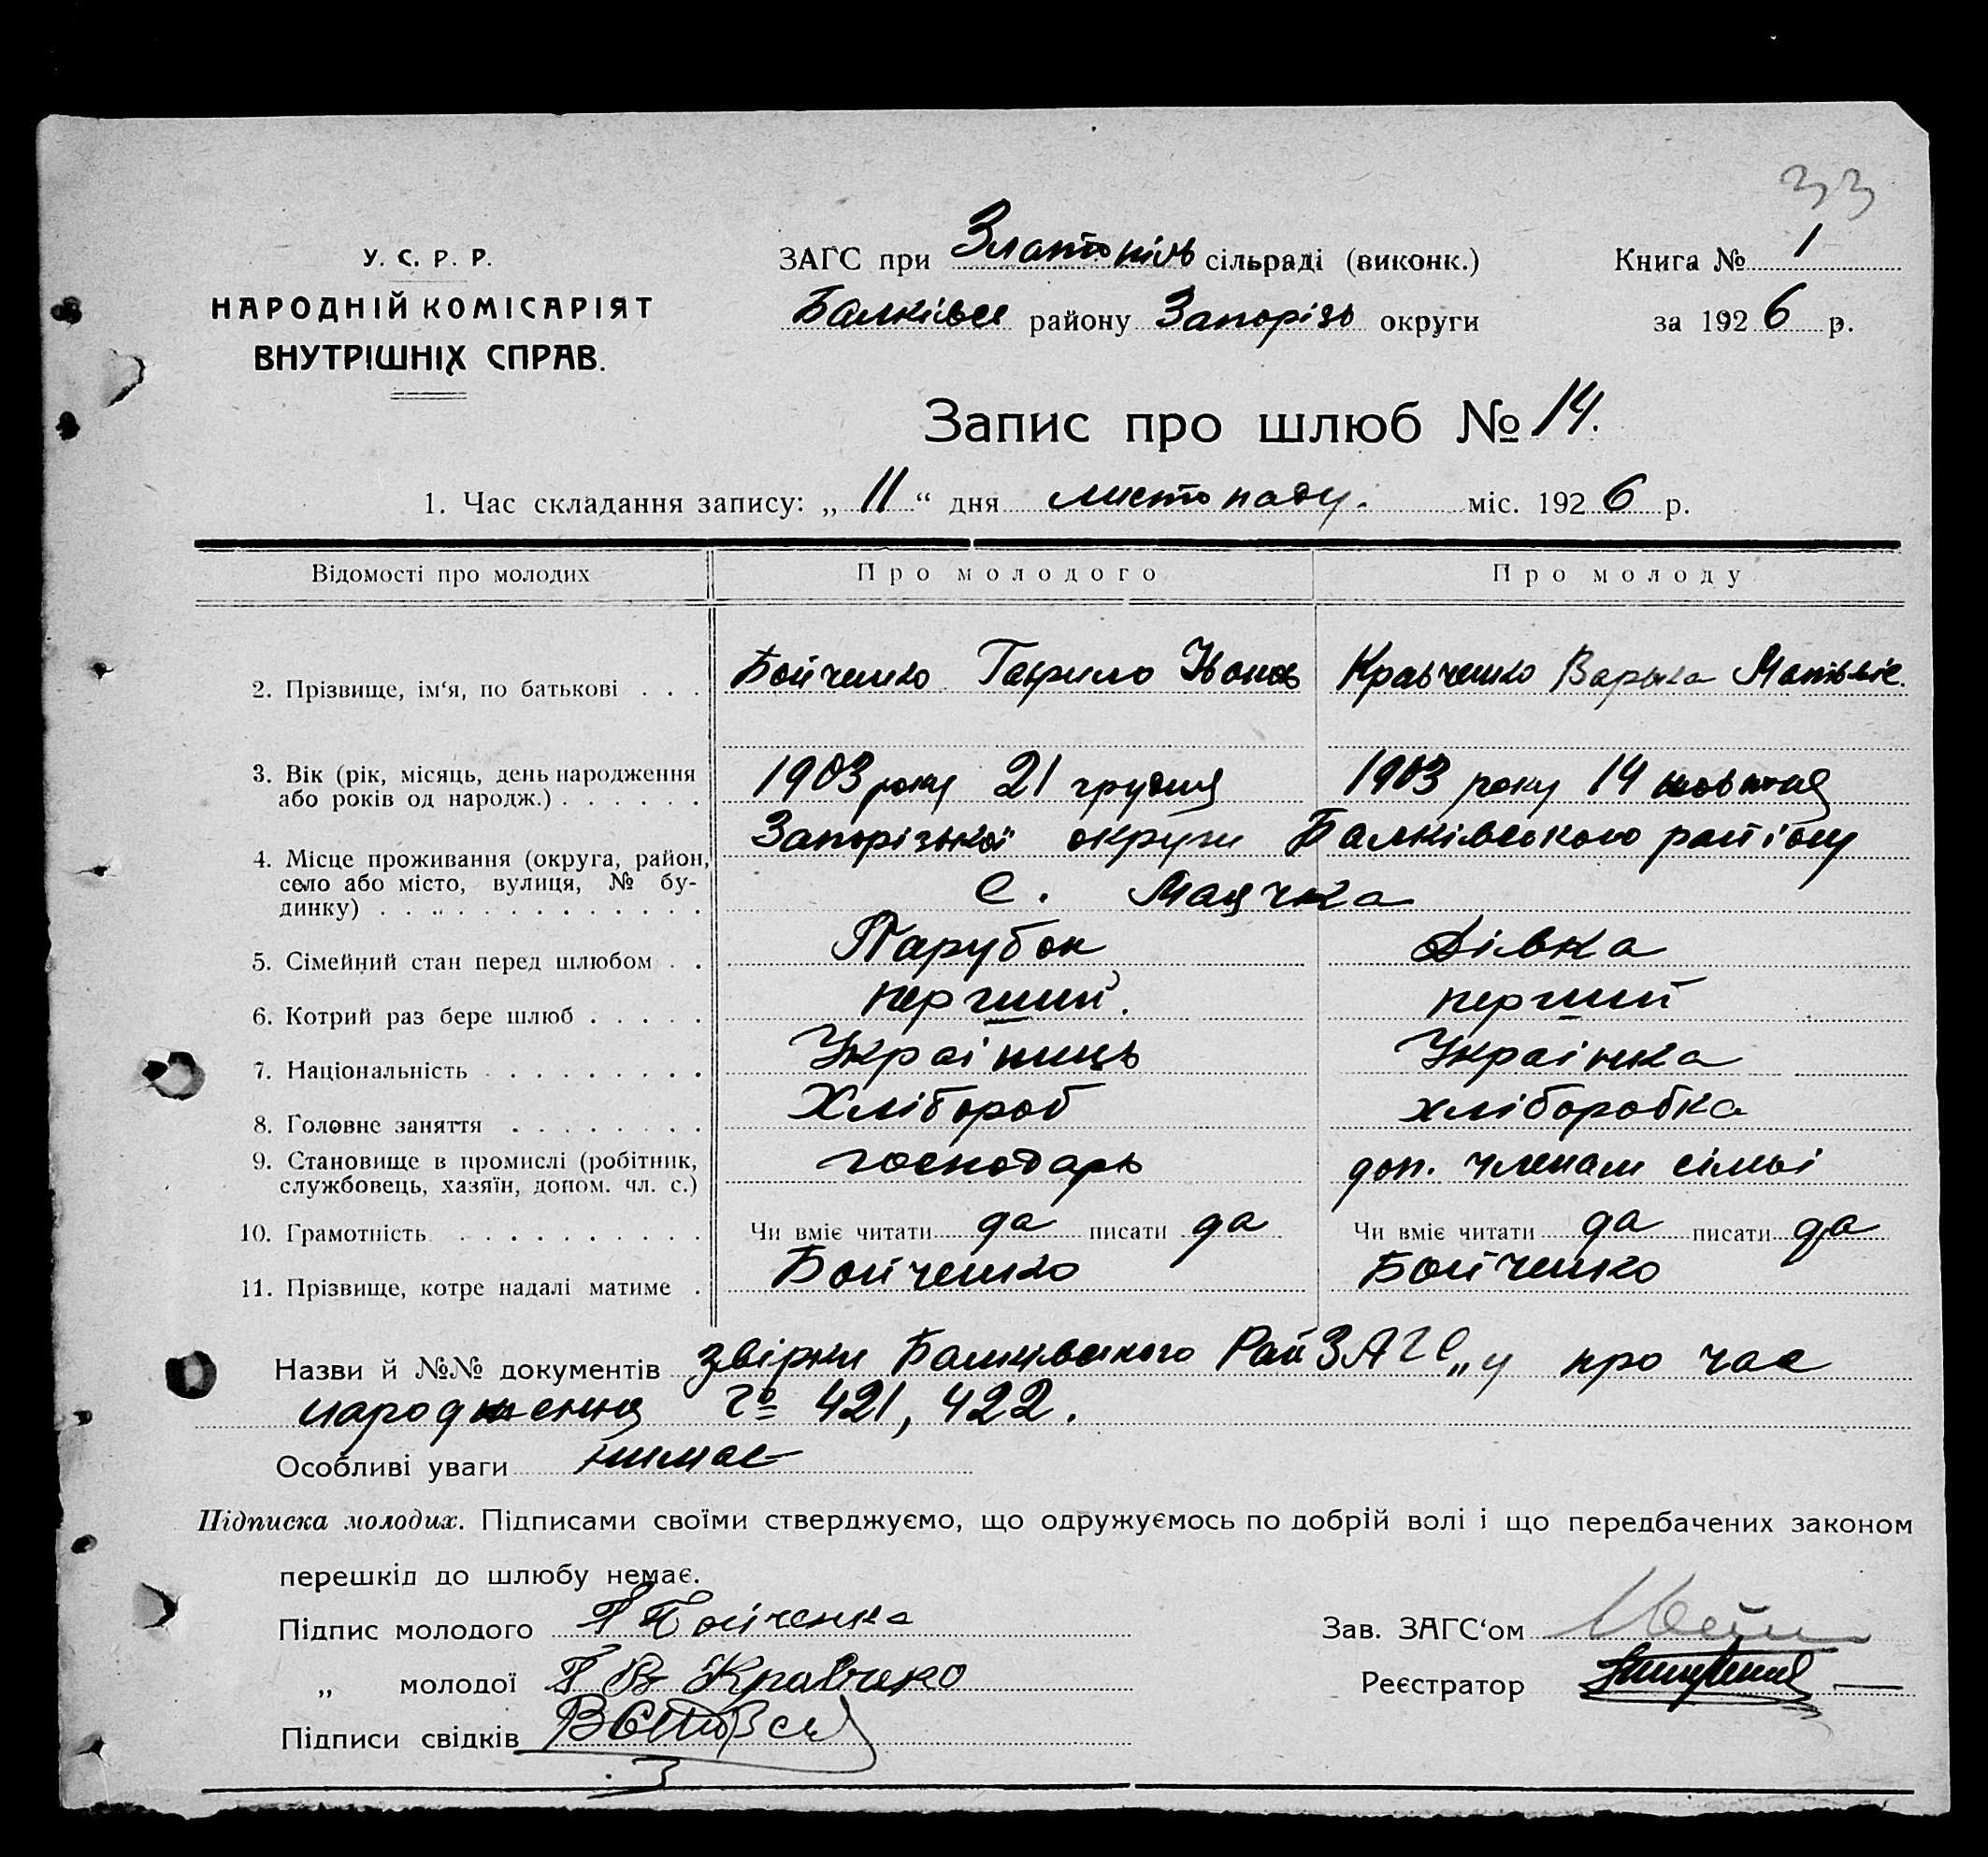 33
У. С. Р. Р.
НАРОДНІЙ КОМІСАРІЯТ
ВНУТРІШНІХ СПРАВ.
ЗАГС при Златопіль сільраді (виконк.)
Балківсь району Запорізь округи
Книга № 1
за 1926 р.
Запис про шлюб № 14.
1. Час складання запису: „ 11 “ дня листопаду. міс. 1926 р.
Відомості про молодих Про молодого Про молоду
2. Прізвище, ім‘я, по батькові . . . Бойченко Гаврило Іванов Кравченко Варька Матвіє.
3. Вік (рік, місяць, день народження
або років од народж.) . . . . . . 1903 року 21 грудня 1903 року 14 жовтня
4. Місце проживання (округа, район,
село або місто, вулиця, № бу-
динку) . . . . . . . . . . . . Запорізької округи Балківського району
с. Маячка
5. Сімейний стан перед шлюбом . . Парубок Дівка
6. Котрий раз бере шлюб . . . . . перший. перший
7. Національність . . . . . . . . . Українць Українка
8. Головне заняття . . . . . . . . Хлібороб хліборобка
9. Становище в промислі (робітник,
службовець, хазяїн, допом. чл. с.) господарь доп. членам сімьі
10. Грамотність . . . . . . . . . . . Чи вміє читати да писати да Чи вміє читати да писати да
11. Прізвище, котре надалі матиме . Бойченко Бойченко
Назви й №№ документів звірки Балківського РайЗАГС„у про час
народження 421, 422.
Особливі уваги нимає
Підписка молодих. Підписами своїми стверджуємо, що одружуємось по добрій волі і що передбачених законом
перешкід до шлюбу немає.
Підпис молодого Г Бойченко
„ молодої В Кравчеко
Підписи свідків
Зав. ЗАГС‘ом
Реєстратор